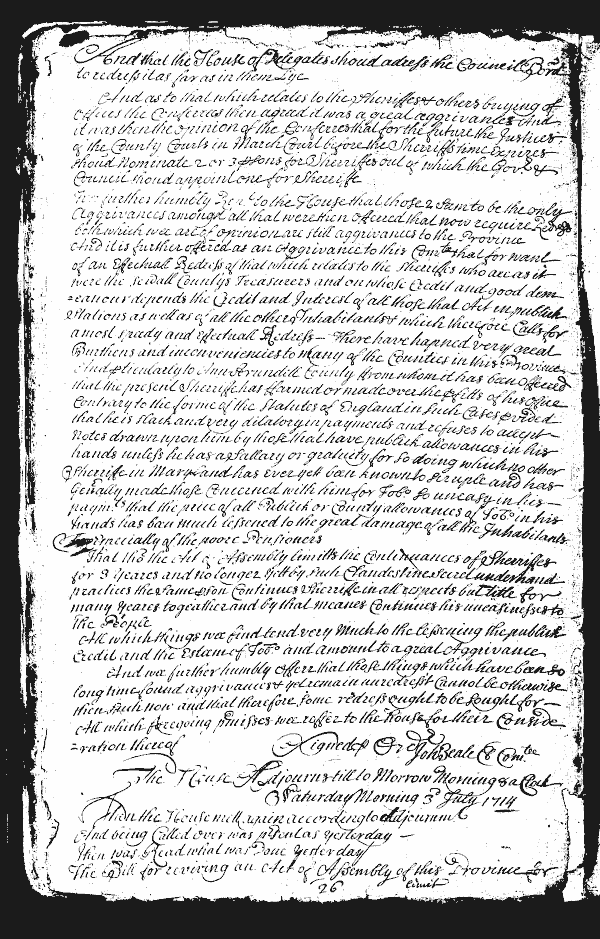 And that the House of Delegates shoud adress the Councill
to redress it as far as in them Lye
And as to that which relates to the Sherriffes & others buying of
offices the Conferrees then agreed it was a great aggrivance And
it was then the opinion of the Conferres that for the future the Justices
of the County Courts in March Court before the Sherriffs time Expires
shoud Nominate 2 or 3 psons for Sherriffs out of which the Govr. &
Council shoud appoint one for Sherriffe
We further humbly to the House that those 2 seem to be the only
Aggrivances amongst all that were then offered that now require
both which wee are of opinion are still aggrivances to the Province
And it is further offered as an Aggrivance to this Comtee that for want
of an Effectuall Redress of that which relates to the Sheriffes who are as it
were the sevall Countys Treasurers and on whose Credit and good dem
=eanour depends the Credit and Interest of all those that Act in publick
Stations as well as of all the others Inhabitants & which therefore Calls for
a most speedy and effectuall Redress – There have hapned very great
Burthens and inconveniencies to many of the Counties in this Province
And pticularly to Ann Arundell County from whom it has been offered
that the present Sherriffe has ffarmed or made over the pfitts of his office
Contrary to the forme of the Statutes of England in such Cases pvided
that he is slack and very dilatory in payments and refuses to accept
Notes drawn upon him by those that have publick allowances in his
hands unless he has a sallary or gratuity for so doing which no other
Sherriffe in Maryland has ever yet been known to scruple and has
Genally made those Concerned with him for Tobo so uneasy in his
paymts that the price of all Publick or County allowances of Tobo in his
hands has been much lessened to the great damage of all the Inhabitants
Especially of the poore Pensioners
That tho the Act of Assembly limitts the Continuances of Sherriffes
for 3 Yeares and no longer Yett by such Clandestine secret underhand
practices the same pson Continues Sherriffe in all respects but title for
many yeares togeather and by that means Continues his uneasinesses to
the People
All which things wee find tend very Much to the lessening the publick
Credit and the Esteem of Tobo and amount to a great Aggrivance
And wee further humbly offer that those things which have been so
long time found aggrivances & yet remain unredresst Cannot be otherwise
then such now and that therefore some redress ought to be sought for –
All which foregoing pmisses wee reffer to the House for their Conside
=ration thereof
Signed p Ordr Jo Beale Cl Comtee
The House Adjourns till to Morrow Morning 8 a Clock
Saturday Morning 3d July 1714
Then the House mett again according to Adjournmt
And being Called over was psent as yesterday –
Then was Read what was Done Yesterday
The Bill for reviving an Act of Assembly of this Province for
26